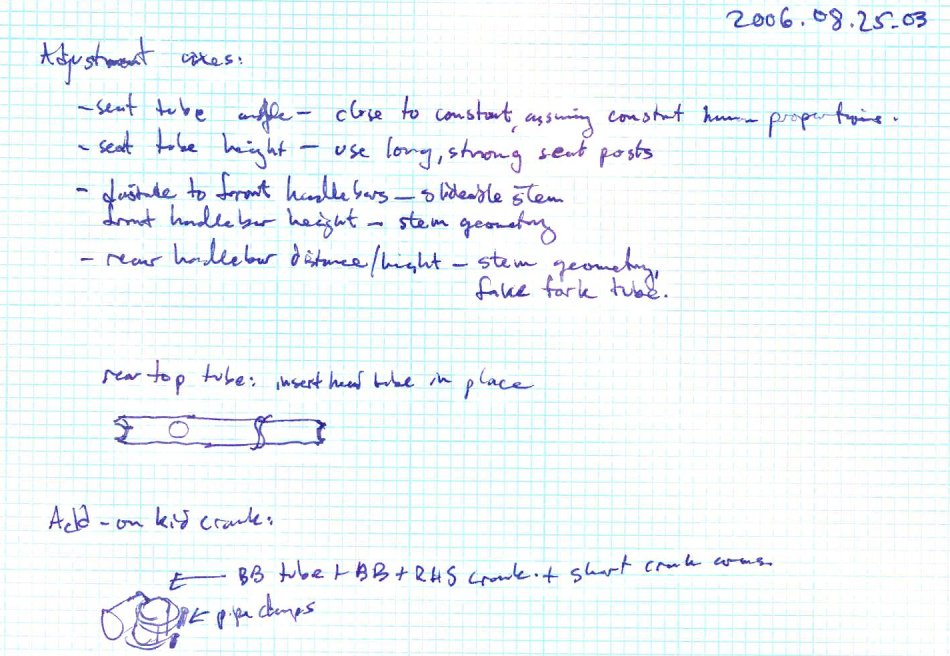 2006.08.25.03
Adjustment axes:
- seat tube angle - close to constant, assuming constant human proportions.
- seat tube height - use long, strong seat posts
- distance to front handlebars - slideable stem
front handlebar height - stem geometry
- rear handlebar distance/height - stem geometry,
fake fork tube.
rear top tube: insert head tube in place
Add-on kid crank:
← BB tube + BB + RHS crank + short crank arms
← pipe clamps